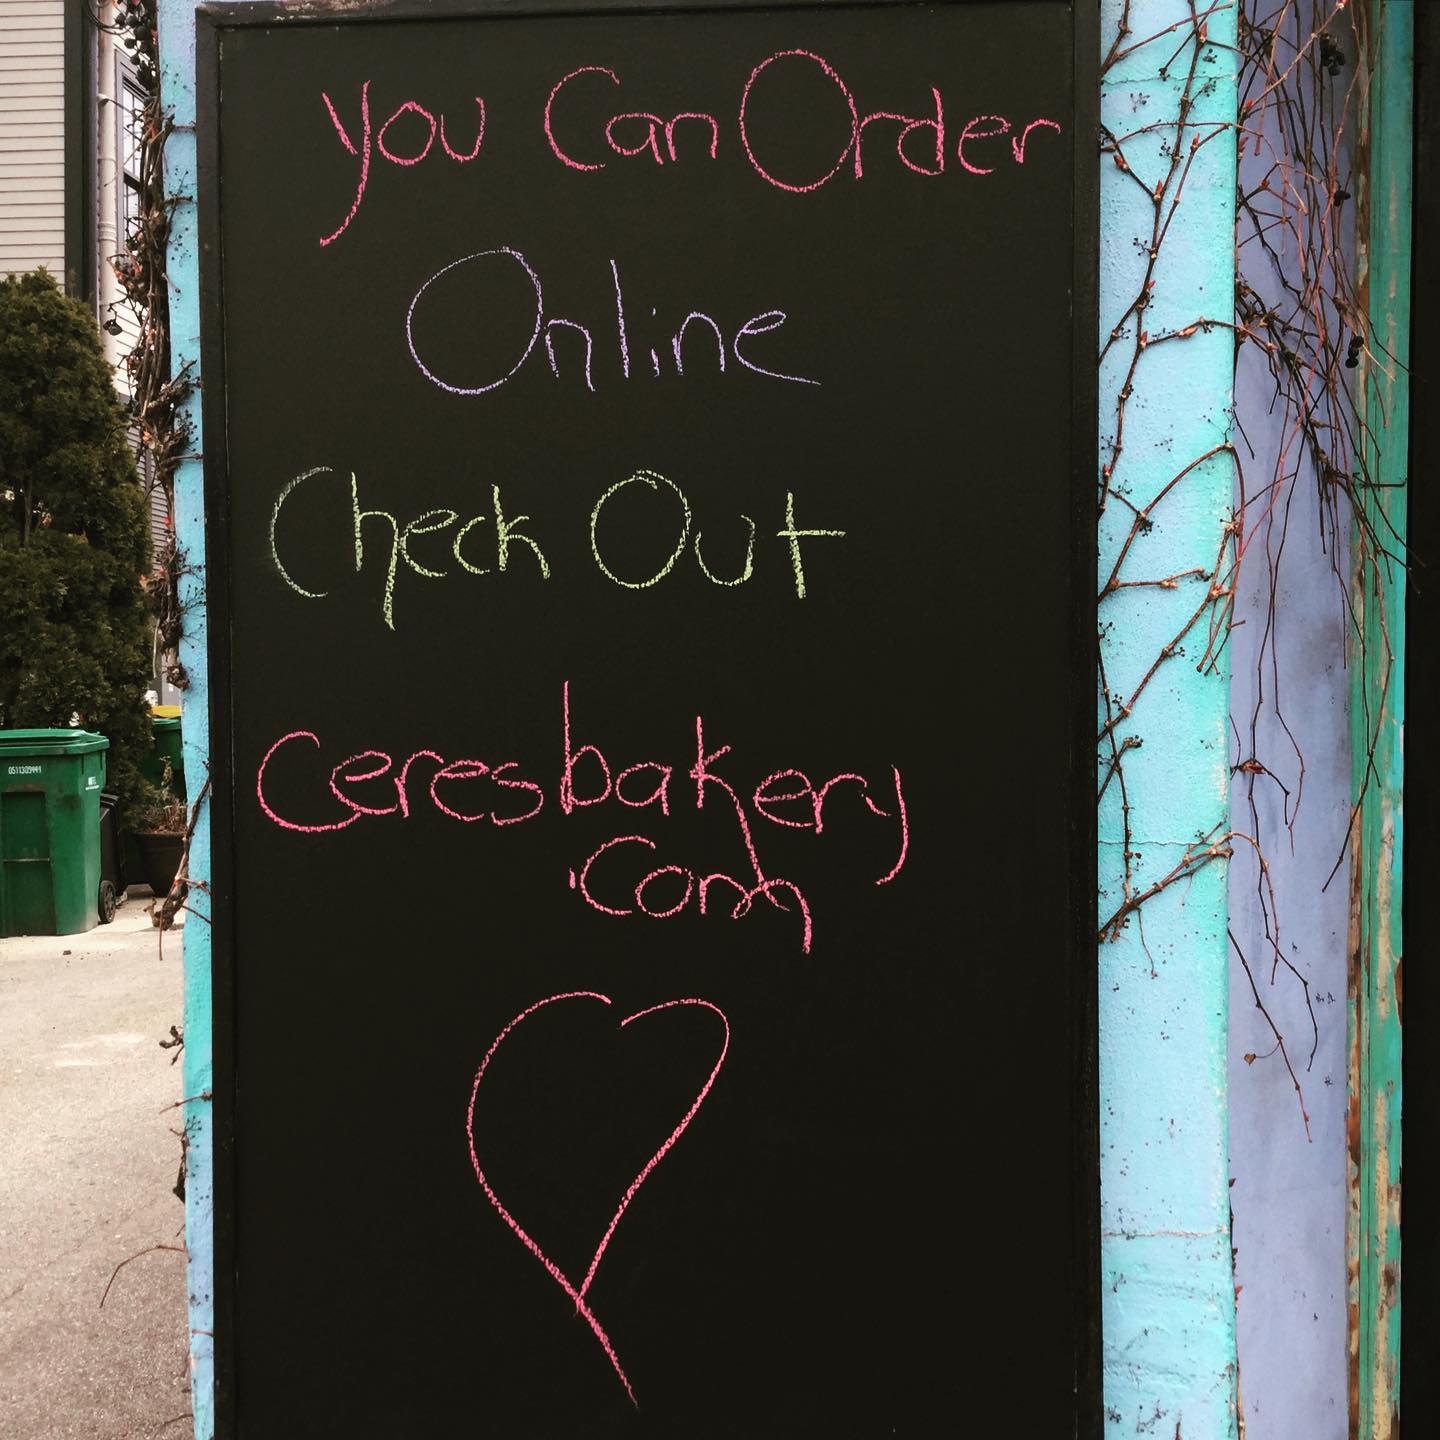 You Can Order
Online
Check Out
Ceresbakery
.Com